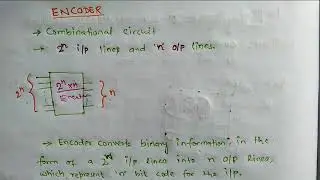 ENCODER
→ Combinational circuit
→ 2ⁿ i/p lines and 'n' o/p lines.
2ⁿ { 2ⁿ x n } n
→ Encoder converts binary information in the
form of a 2ⁿ i/p lines into n o/p lines,
which represent 'n' bit code for the i/p.